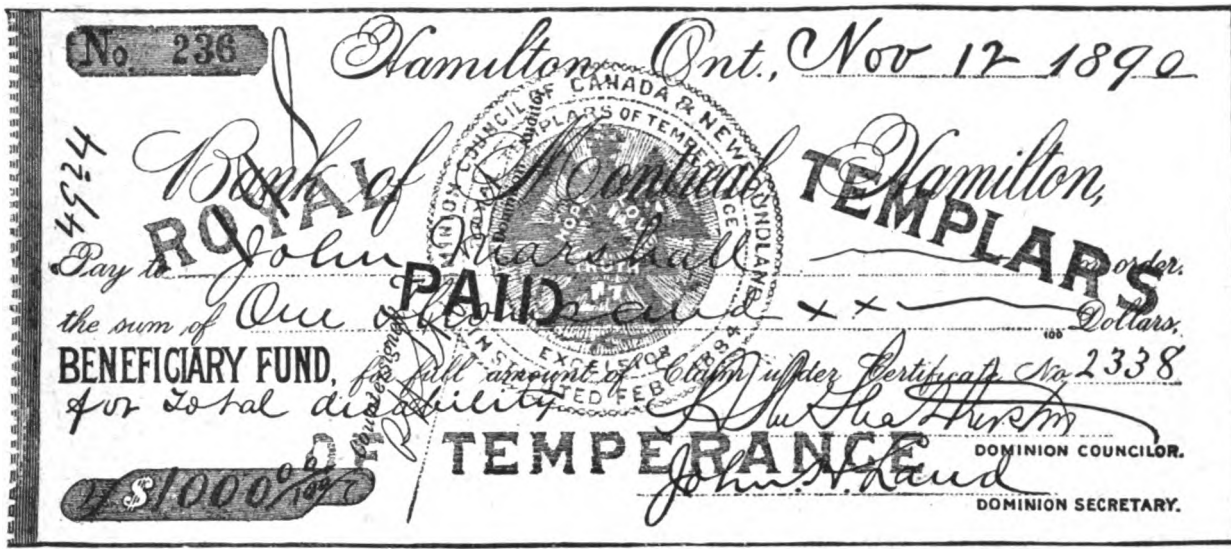 No 236
Hamilton, Ont., Nov 12 1890
4924
Bank of Montreal Hamilton,
ROYAL TEMPLARS
Pay to John Marshall or order.
PAID
the sum of One Thousand x x 100 Dollars,
BENEFICIARY FUND, for full amount of Claim under Certificate No 2338
for Total disability
Countersigned
OF TEMPERANCE
DOMINION COUNCILOR.
$1000 00/100
John H. Land
DOMINION SECRETARY.
DOMINION COUNCIL OF CANADA & NEWFOUNDLAND
ROYAL TEMPLARS OF TEMPERANCE
TRUTH
EXCELSIOR
INSTITUTED FEB 1884